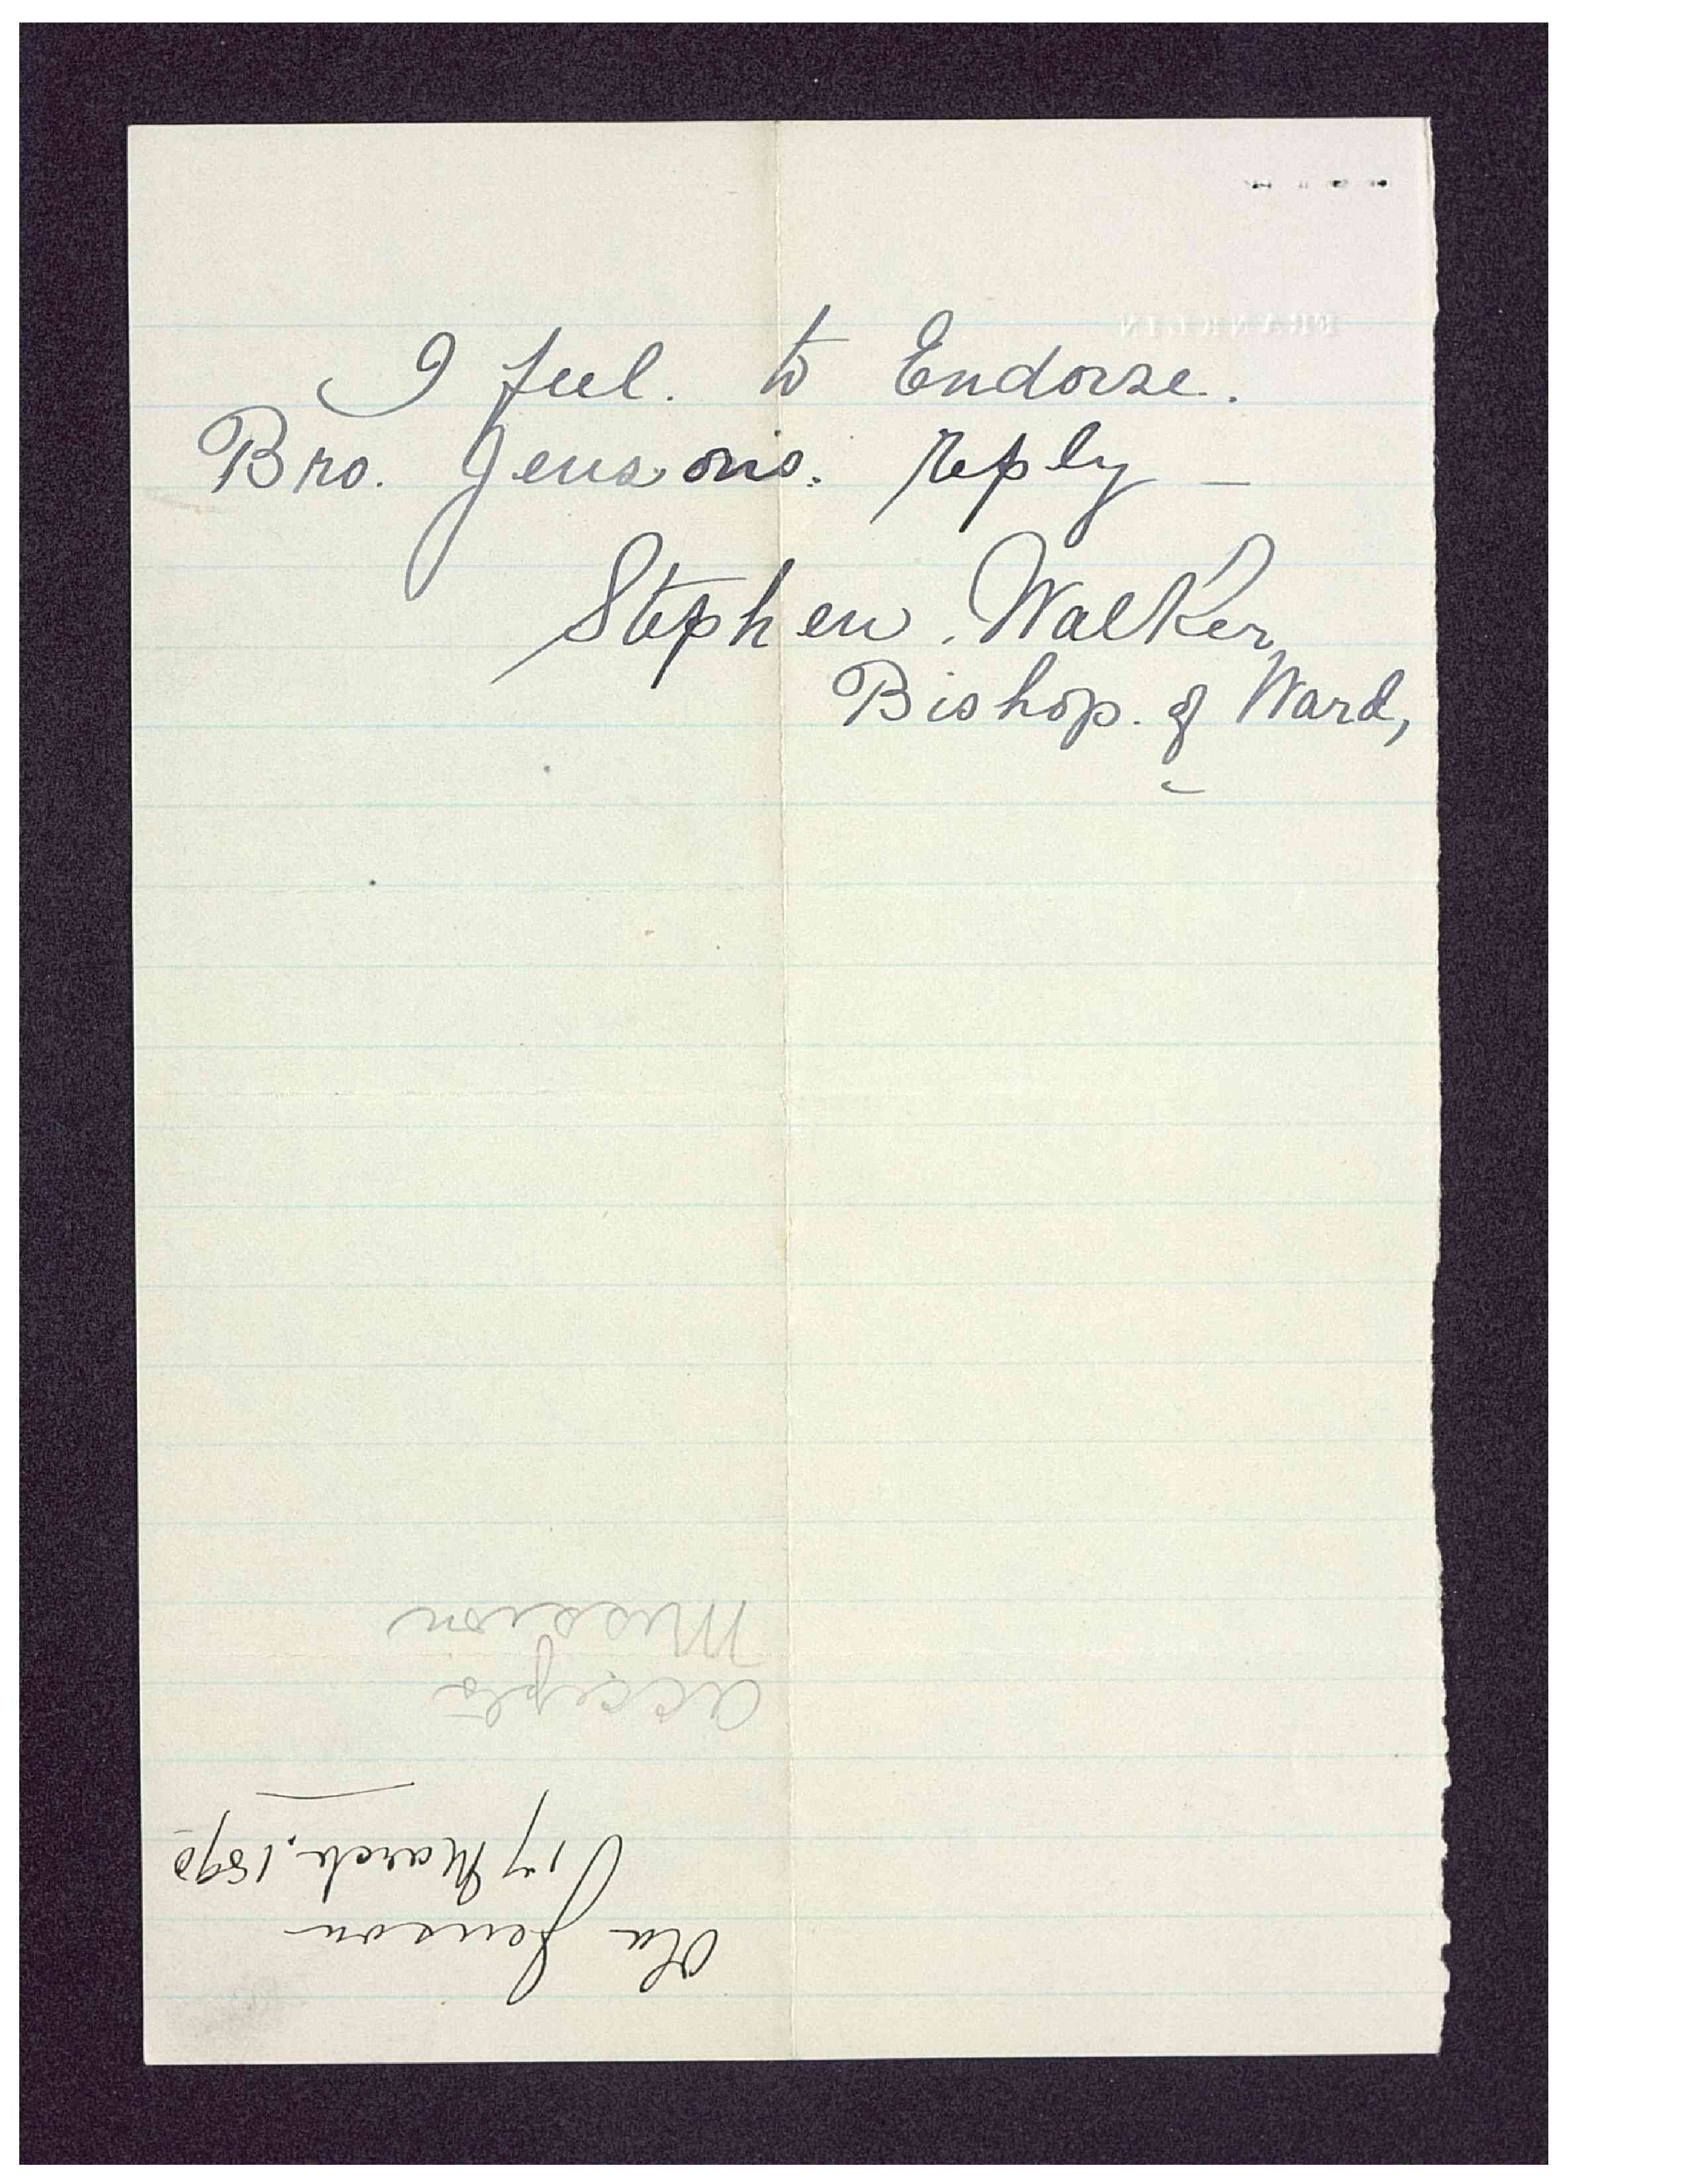 I feel. to Endorse.
Bro. Jensons. reply —
Stephen. Walker,
Bishop. of Ward,
Ola Jenson
17 March, 1890
Accepts
Mission
FRANKLIN